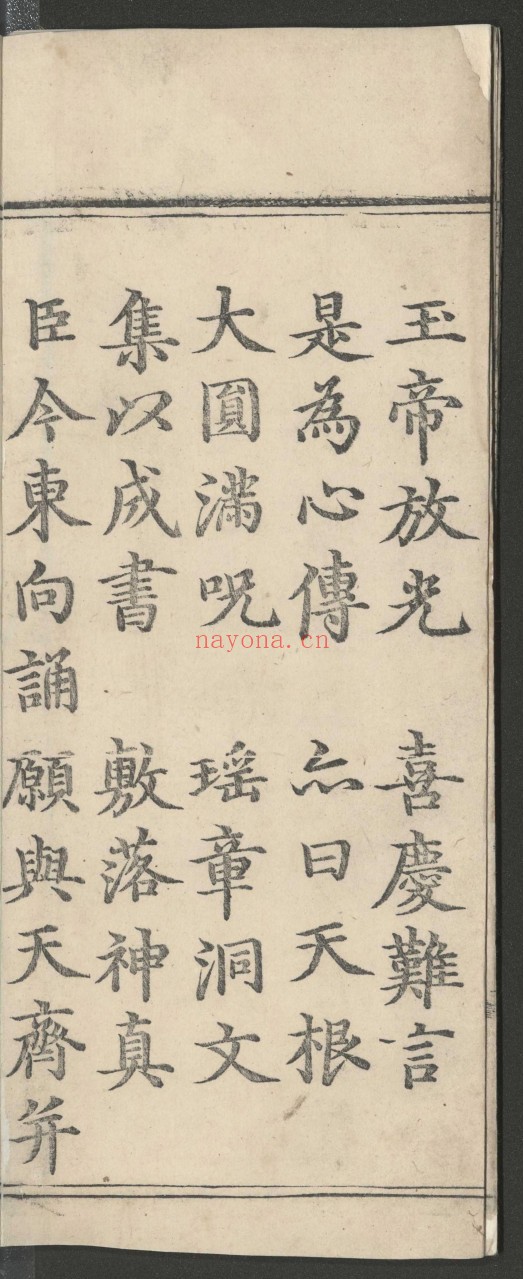 玉帝放光　喜慶難言
是為心傳　亦曰天根
大圓滿呪　瑶章洞文
集以成書　敷落神真
臣今東向誦願與天齊并
nayona.cn